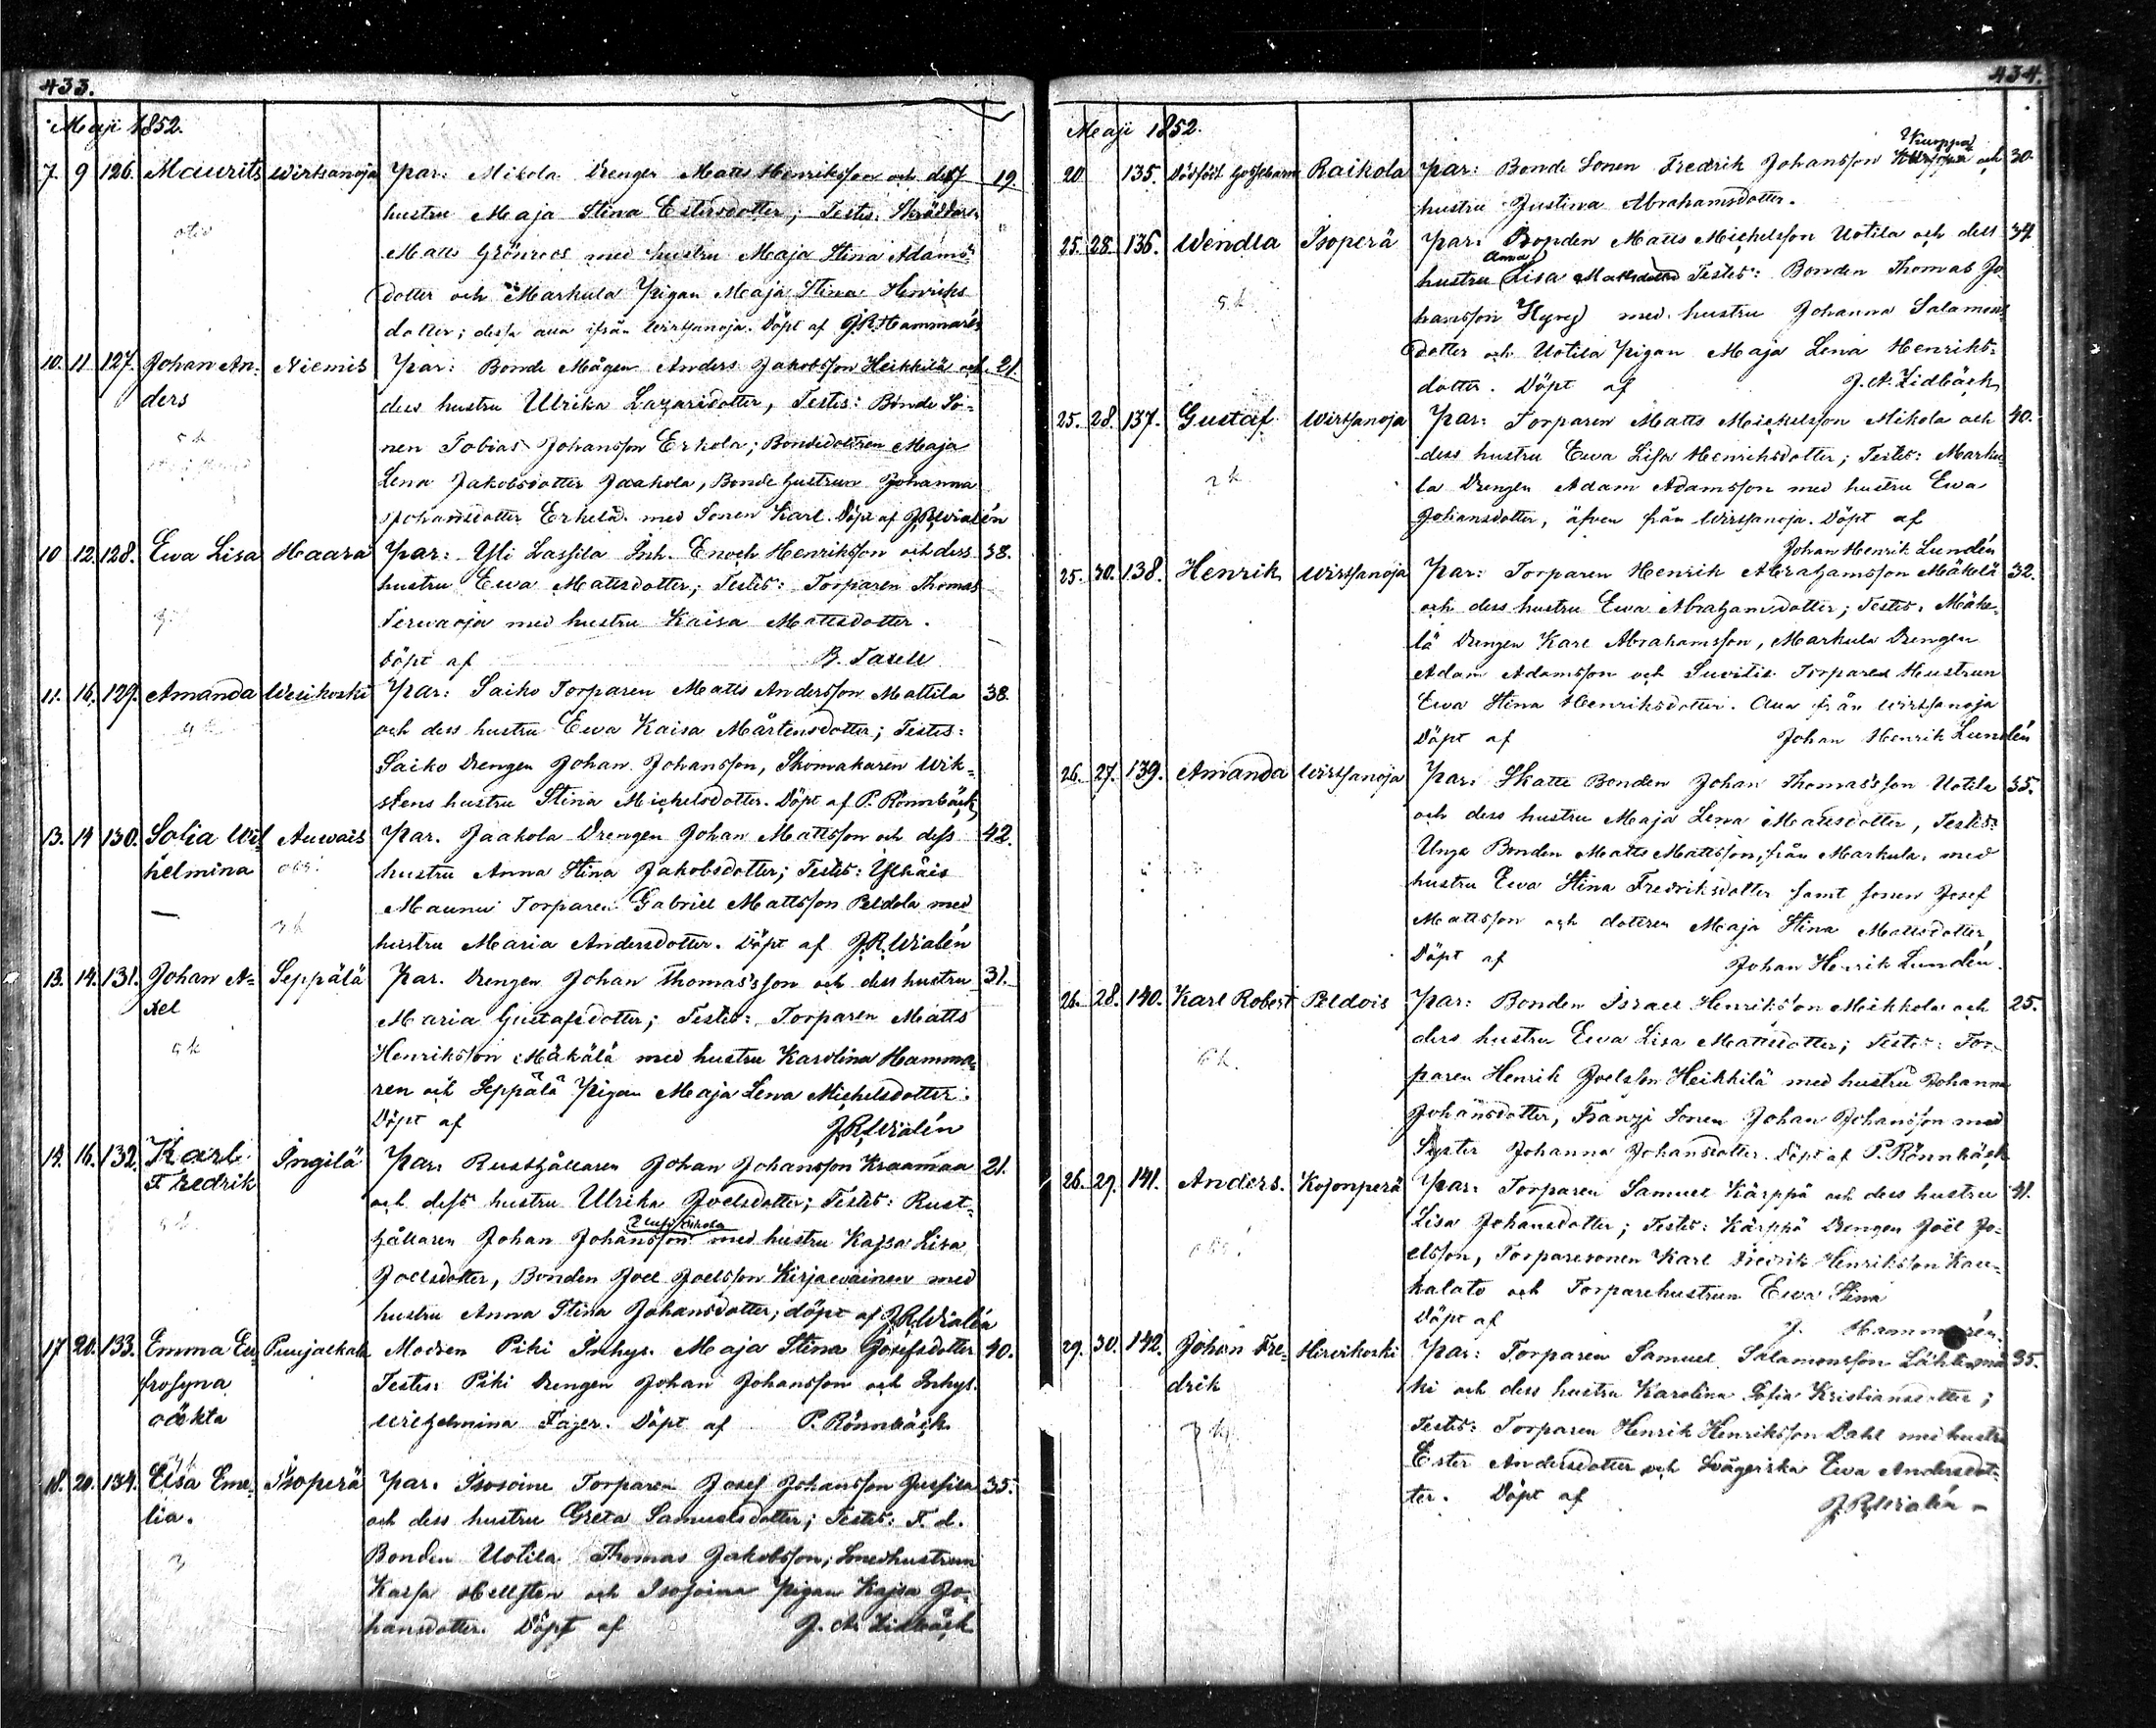 433.
Maji 1852.
7. 9 126. Maurits Wirtsanoja Par: Mikola Drengen Matts Henriksson och dess 19.
hustru Maja Stina Estersdotter; Testes: Skräddaren
Matts Grönroos med hustru Maja Stina Adams-
dotter och Markula Pigan Maja Stina Henriks
dotter; dessa alla ifrån Wirtsanoja. Döpt af J.R. Hammarén
10. 11 127. Johan An- Niemis Par: Bonde Mågen Anders Jakobsson Heikkilä och 21.
ders dess hustru Ulrika Lazaridotter, Testes: Bonde So-
nen Tobias Johansson Erkola; Bondedottren Maja
Lena Jakobsdotter Jaakola, Bonde Hustrun Johanna
Johansdotter Erkola med Sonen Karl. Döpt af J.R. Wialén
10 12. 128. Ewa Lisa Haara Par: Yli Lassila Inh. Enoch Henriksson och dess 38.
hustru Ewa Mattsdotter; Testes: Torparen Thomas
Terwaoja med hustru Kaisa Mattsdotter.
Döpt af B. Taxell
11. 16. 129. Amanda Wesikoski Par: Saiko Torparen Matts Andersson Mattila 38.
och dess hustru Ewa Kaisa Mårtensdotter; Testes:
Saiko Drengen Johan Johansson, Skomakaren Wik-
stens hustru Stina Michelsdotter. Döpt af P. Rönnbäck
13. 14 130. Sofia Wil- Auwais Par. Jaakola Drengen Johan Mattsson och dess 42.
helmina obs! hustru Anna Stina Jakobsdotter; Testes: Ylhäis
Maunu Torparen Gabriel Mattsson Peldola med
hustru Maria Andersdotter. Döpt af J.R. Wialén
13. 14. 131. Johan A- Seppälä Par. Drengen Johan Thomasson och dess hustru 31.
xel Maria Gustafsdotter; Testes: Torparen Matts
Henriksson Mäkälä med hustru Karolina Hamma-
ren och Seppälä Pigan Maja Lena Michelsdotter.
Döpt af J.R. Wialén
14. 16. 132. Karl Ingilä Par: Rusthållaren Johan Johansson Kraamaa 21.
Fredrik och dess hustru Ulrika Joelsdotter; Testes: Rust-
hållaren Johan Johansson med hustru Kajsa Lisa
Joelsdotter, Bonden Joel Joelsson Kirjawainen med
hustru Anna Stina Johansdotter; döpt af J.R. Wialén
17 20. 133. Emma Eu- Puujalkala Modren Piki Inhys. Maja Stina Josefsdotter 40.
frosyna Testes: Piki Drengen Johan Johansson och Inhys.
oäkta Wilhelmina Fager. Döpt af P. Rönnbäck
18. 20. 134. Elsa Eme- Isoperä Par. Isosoine Torparen Josef Johansson Jussila 35.
lia. och dess hustru Greta Samuelsdotter; Testes: F. d.
Bonden Uotila Thomas Jakobsson; Smedhustrun
Kaisa Hellsten och Isosoina Pigan Kajsa Jo-
hansdotter. Döpt af J. A. Zidbäck
434.
Maji 1852.
20 135. Dödfödt Gossebarn Raikola Par: Bonde Sonen Fredrik Johansson Kuoppa och 30.
hustru Justina Abrahamsdotter.
25. 28. 136. Wendla Isoperä Par: Bonden Matts Michelsson Uotila och dess 34.
Anna
hustru Lisa Mattsdotter Testes: Bonden Thomas Jo-
hansson Kyrö med hustru Johanna Salamons
dotter och Uotila Pigan Maja Lena Henriks-
dotter. Döpt af J. A. Zidbäck
25. 28. 137. Gustaf Wirtsanoja Par: Torparen Matts Michelsson Mikola och 40.
dess hustru Ewa Lisa Henriksdotter; Testes: Marku-
la Drengen Adam Adamsson med hustru Ewa
Johansdotter, äfven från Wirtsanoja. Döpt af
Johan Henrik Lundén
25. 30. 138. Henrik Wirtsanoja Par: Torparen Henrik Abrahamsson Mäkelä 32.
och dess hustru Ewa Abrahamsdotter; Testes: Mäke-
lä Drengen Karl Abrahamsson, Markula Drengen
Adam Adamsson och Suvitie Torpare Hustrun
Ewa Stina Henriksdotter. Alla från Wirtsanoja
Döpt af Johan Henrik Lundén
26. 27. 139. Amanda Wirtsanoja Par: Skatte Bonden Johan Thomasson Uotila 35.
och dess hustru Maja Lena Mattsdotter, Testes:
Unga Bonden Matts Mattsson, från Markula, med
hustru Ewa Stina Fredriksdotter samt sonen Josef
Mattsson och dottren Maja Stina Mattsdotter
Döpt af Johan Henrik Lundén.
26. 28. 140. Karl Robert Peldois Par: Bonden Israel Henriksson Mickola och 25.
dess hustru Ewa Lisa Mattsdotter; Testes: Tor-
paren Henrik Joelsson Heikkilä med hustru Johanna
Johansdotter, Franzi Sonen Johan Johansson med
Syster Johanna Johansdotter. Döpt af P. Rönnbäck
26. 29. 141. Anders. Kojonperä Par: Torparen Samuel Kärppä och dess hustru 41.
obs! Lisa Johansdotter; Testes: Kärppä Drengen Joël Jo-
elsson, Torparesonen Karl Fredrik Henriksson Kau-
kalato och Torparehustrun Ewa Stina
Döpt af J. Hammarén.
29. 30. 142. Johan Fre- Hirvikoski Par: Torparen Samuel Salamonsson Lähteenmä- 35.
drik ki och dess hustru Karolina Sofia Kristiansdotter;
Testes: Torparen Henrik Henriksson Dahl med hustru
Ester Andersdotter och Svägerska Ewa Andersdot-
ter. Döpt af J.R. Wialén